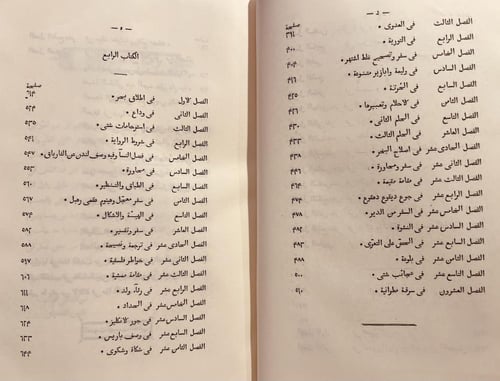 — د —
صحيفة
الفصل الثالث فى العدوى • ٣٩٤
الفصل الرابع فى التورية • ٤٠٠
الفصل الخامس فى سفر وتصحيح غلط اشتهر •
الفصل السادس فى وليمة وابازير متنوعة •
الفصل السابع فى الحرتة • ٤٢٥
الفصل الثامن فى الاحلام وتعبيرها •
الفصل التاسع فى الحلم الثانى • ٤٣٠
الفصل العاشر فى الحلم الثالث • ٤٣٣
الفصل الحادى عشر فى اصلاح البخر • ٤٣٨
الفصل الثانى عشر فى سفر ومحاورة •
الفصل الثالث عشر فى مقامة مقيمة •
الفصل الرابع عشر فى جوع ديقوع دهقوع • ٤٧٤
الفصل الخامس عشر فى السفر من الدير • ٤٧٨
الفصل السادس عشر فى النشوة •
الفصل السابع عشر فى الحض على التعرّى •
الفصل الثامن عشر فى بلوعة • ٤٨٨
الفصل التاسع عشر فى عجائب شتى • ٥٠٠
الفصل العشرون فى سرقة مطرانية • ٥١٠
— ه —
الكتاب الرابع
صحيفة
الفصل الاول فى اطلاق بحر •
الفصل الثانى فى وداع • ٥٢٤
الفصل الثالث فى استرحامات شتى • ٥٣٥
الفصل الرابع فى شروط الرواية • ٥٤١
الفصل الخامس فى فضل النسآ وفيه وصف لندن عن الفارياق • ٥٤٧
الفصل السادس فى محاورة • ٥٥٣
الفصل السابع فى الطباق والتنظير • ٥٦٠
الفصل الثامن فى سفر معجل وهينوم عقمى رهبل • ٥٦٧
الفصل التاسع فى الهيئة والاشكال • ٥٧٤
الفصل العاشر فى سفر وتفسير •
الفصل الحادى عشر فى ترجمة ونصيحة • ٥٨٨
الفصل الثانى عشر فى خواطر فلسفية • ٥٩٧
الفصل الثالث عشر فى مقامة ممشية • ٦٠٦
الفصل الرابع عشر فى رثآء ولد • ٦١١
الفصل الخامس عشر فى الحداد • ٦١٨
الفصل السادس عشر فى جور الانكليز • ٦٢٤
الفصل السابع عشر فى وصف باريس • ٦٣٣
الفصل الثامن عشر فى شكاة وشكوى • ٦٤٤